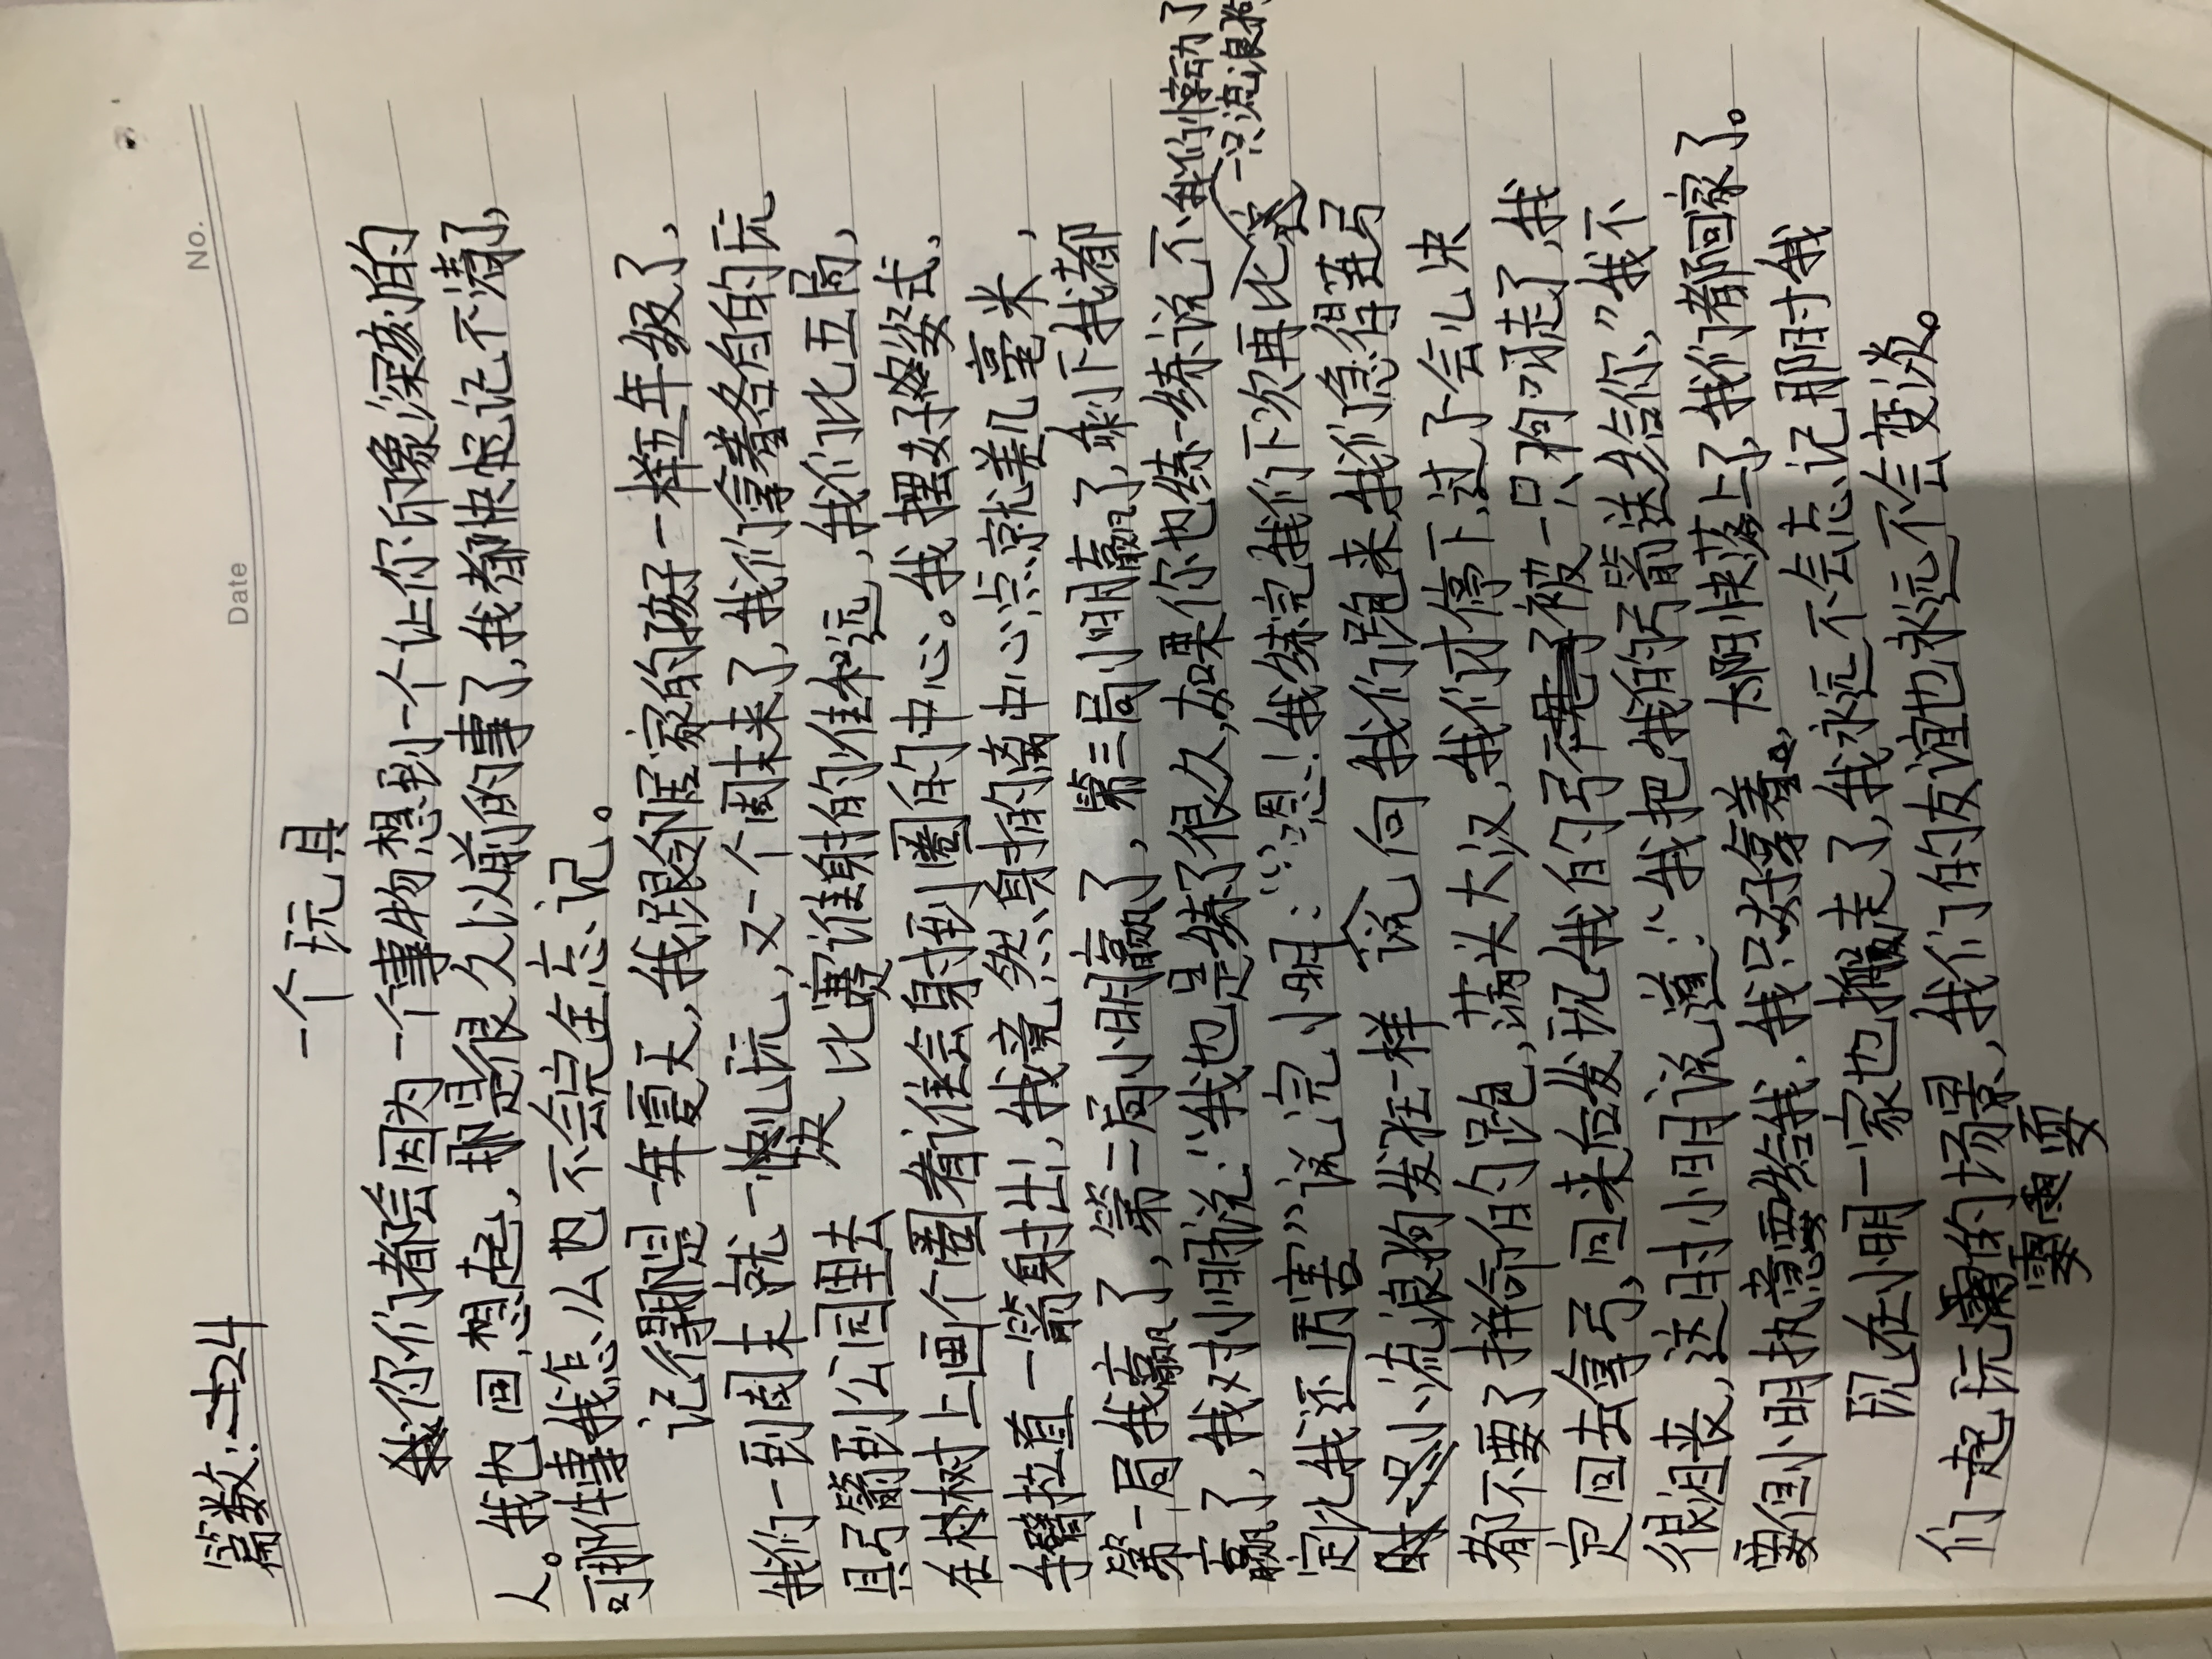 No.
Date
篇数:二十24
一个玩具
你们都会因为一个事物想到一个让你印象深刻的
人。我也回想起，那是很久以前的事了，我都快忘记不清了，
可那件事我怎么也不会完全忘记。
记得那是一年夏天，我跟邻居家的孩子一样五年级了，
我们一到周末就一块儿玩，又一个周末来了，我们拿着各自的玩
具弓箭到公园里去 比赛谁射的准和远，我们比五局，
在树上画个圈看谁会射到圈的中心。我摆好姿式，
手臂拉直一箭射出，我竟然射的离中心点就差几毫米，
第一局我赢了，第二局小明赢了，第三局小明赢了，剩下我都
赢了，我对小明说：“我也是练了很久，如果你也练一练说不
定比我还厉害”说完，小明：“恩！我练完我们下次再比
我们惊动了
一只流浪狗
小流浪狗发狂一样 向我们跑来，我们急得连弓
都不要了拼命的跑，满头大汉，我们才停下，过了会儿决
定回去拿弓，回来后发现我的弓被一只狗叼走了，我
很沮丧，这时小明说道：“我把我的弓箭送给你，”我不
要但小明执意要给我，我只好拿着。太阳快落上了，我们都回家了。
现在小明一家也搬走了，我永远不会忘记那时我
们一起玩耍的场景，我们的友谊也永远不会变淡。
耍